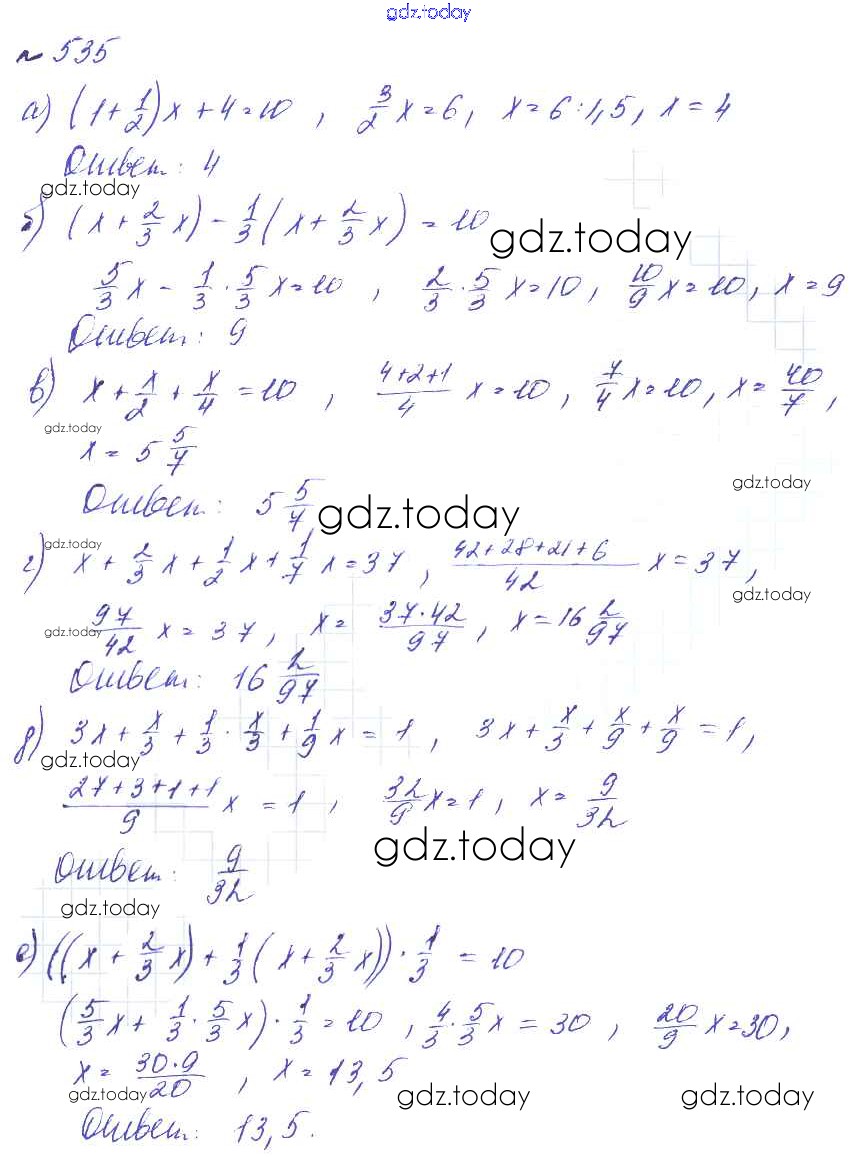 gdz.today
№ 535
а) (1+1/2)x+4=10, 3/2x=6, x=6:1,5, x=4
Ответ: 4
gdz.today
б) (x+2/3x)-1/3(x+2/3x)=10
gdz.today
5/3x-1/3·5/3x=10, 2/3·5/3x=10, 10/9x=10, x=9
Ответ: 9
в) x+x/2+x/4=10, (4+2+1)/4 x=10, 7/4x=10, x=40/7,
gdz.today
x=5 5/7
gdz.today
Ответ: 5 5/7
gdz.today
gdz.today
г) x+2/3x+1/2x+1/7x=37, (42+28+21+6)/42 x=37,
gdz.today
gdz.today
97/42 x=37, x=(37·42)/97, x=16 2/97
Ответ: 16 2/97
д) 3x+x/3+1/3·x/3+1/9x=1, 3x+x/3+x/9+x/9=1,
gdz.today
(27+3+1+1)/9 x=1, 32/9x=1, x=9/32
gdz.today
Ответ: 9/32
gdz.today
е) ((x+2/3x)+1/3(x+2/3x))·1/3=10
(5/3x+1/3·5/3x)·1/3=10, 4/3·5/3x=30, 20/9x=30,
x=(30·9)/20, x=13,5
gdz.today
gdz.today
gdz.today
Ответ: 13,5.